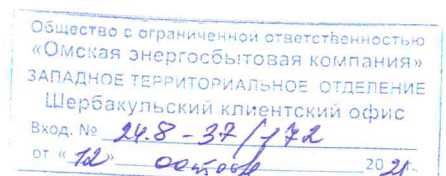 Общество с ограниченной ответственностью
«Омская энергосбытовая компания»
ЗАПАДНОЕ ТЕРРИТОРИАЛЬНОЕ ОТДЕЛЕНИЕ
Шербакульский клиентский офис
Вход. № 24.8-37/172
от «12» октября 2021г.